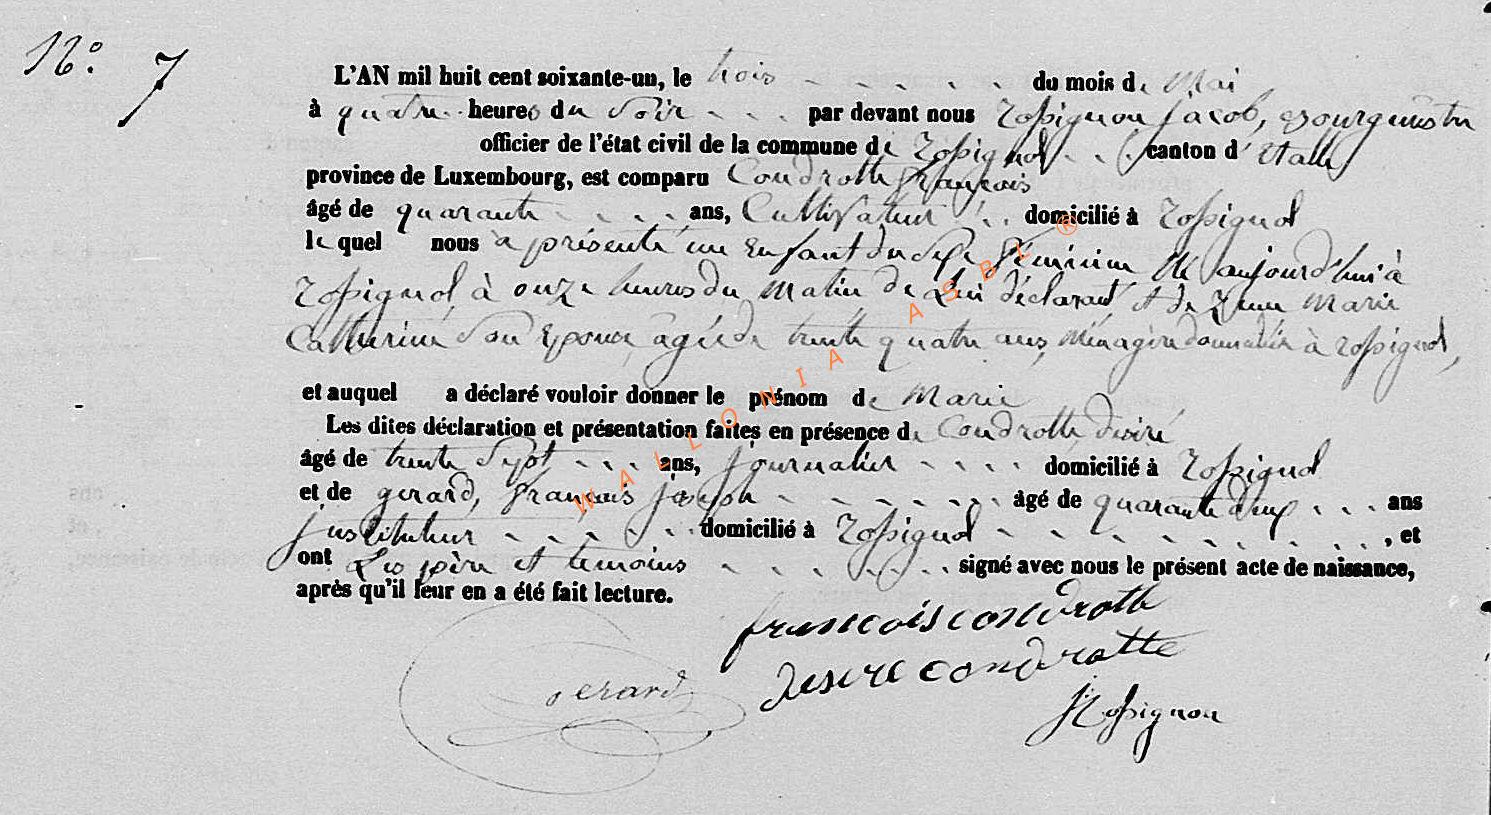 N° 7
L'AN mil huit cent soixante-un, le trois - - - - - du mois de Mai
à quatre heures du Soir - - - par devant nous Rossignon Jacob, Bourgmestre
officier de l'état civil de la commune de Rossignol - - canton d'Etalle
province de Luxembourg, est comparu Condrotte François
âgé de quarante - - - - ans, Cultivateur - - domicilié à Rossignol
lequel nous a présenté un Enfant du Sexe féminin né aujourd'hui à
Rossignol à onze heures du Matin de Lui déclarant et de Marie
Catherine Son Epouse, âgée de trente quatre ans, Ménagère domiciliée à Rossignol,
et auquel a déclaré vouloir donner le prénom de Marie
Les dites déclaration et présentation faites en présence de Condrotte Désiré
âgé de trente Sept - - - ans, Journalier - - - - domicilié à Rossignol
et de gerard, françois joseph - - - - - - - âgé de quarante deux - - - ans
Instituteur - - - - - domicilié à Rossignol - - - - - - - - , et
ont Les père et temoins - - - - - - signé avec nous le présent acte de naissance,
après qu'il leur en a été fait lecture.
francois condrotte
desire condrotte
Gerard
J Rossignon
WALLONIA ASBL ®